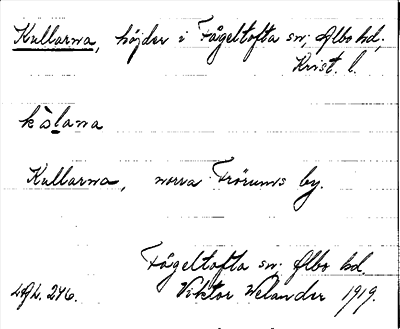 Kullarna, höjder i Fågeltofta sn; Albo hd;
Krist. l.
kàlana
Kullarna, norra Frörums by.
Fågeltofta sn; Albo hd.
LAL. 276. Viktor Welander 1919.